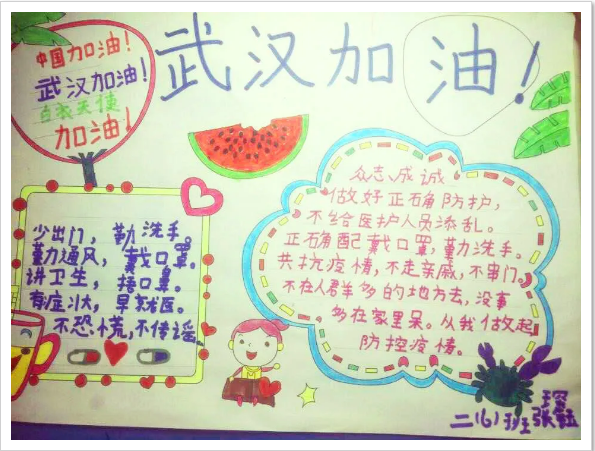 武汉加油!
中国加油!
武汉加油!
白衣天使
加油!
少出门，勤洗手。
勤通风，戴口罩。
讲卫生，捂口鼻。
有症状，早就医。
不恐慌，不传谣。
众志成诚
做好正确防护，
不给医护人员添乱。
正确配戴口罩，勤洗手。
共抗疫情，不走亲戚，不串门。
不在人群多的地方去，没事
多在家里呆。从我做起
防控疫情。
二(6)班张